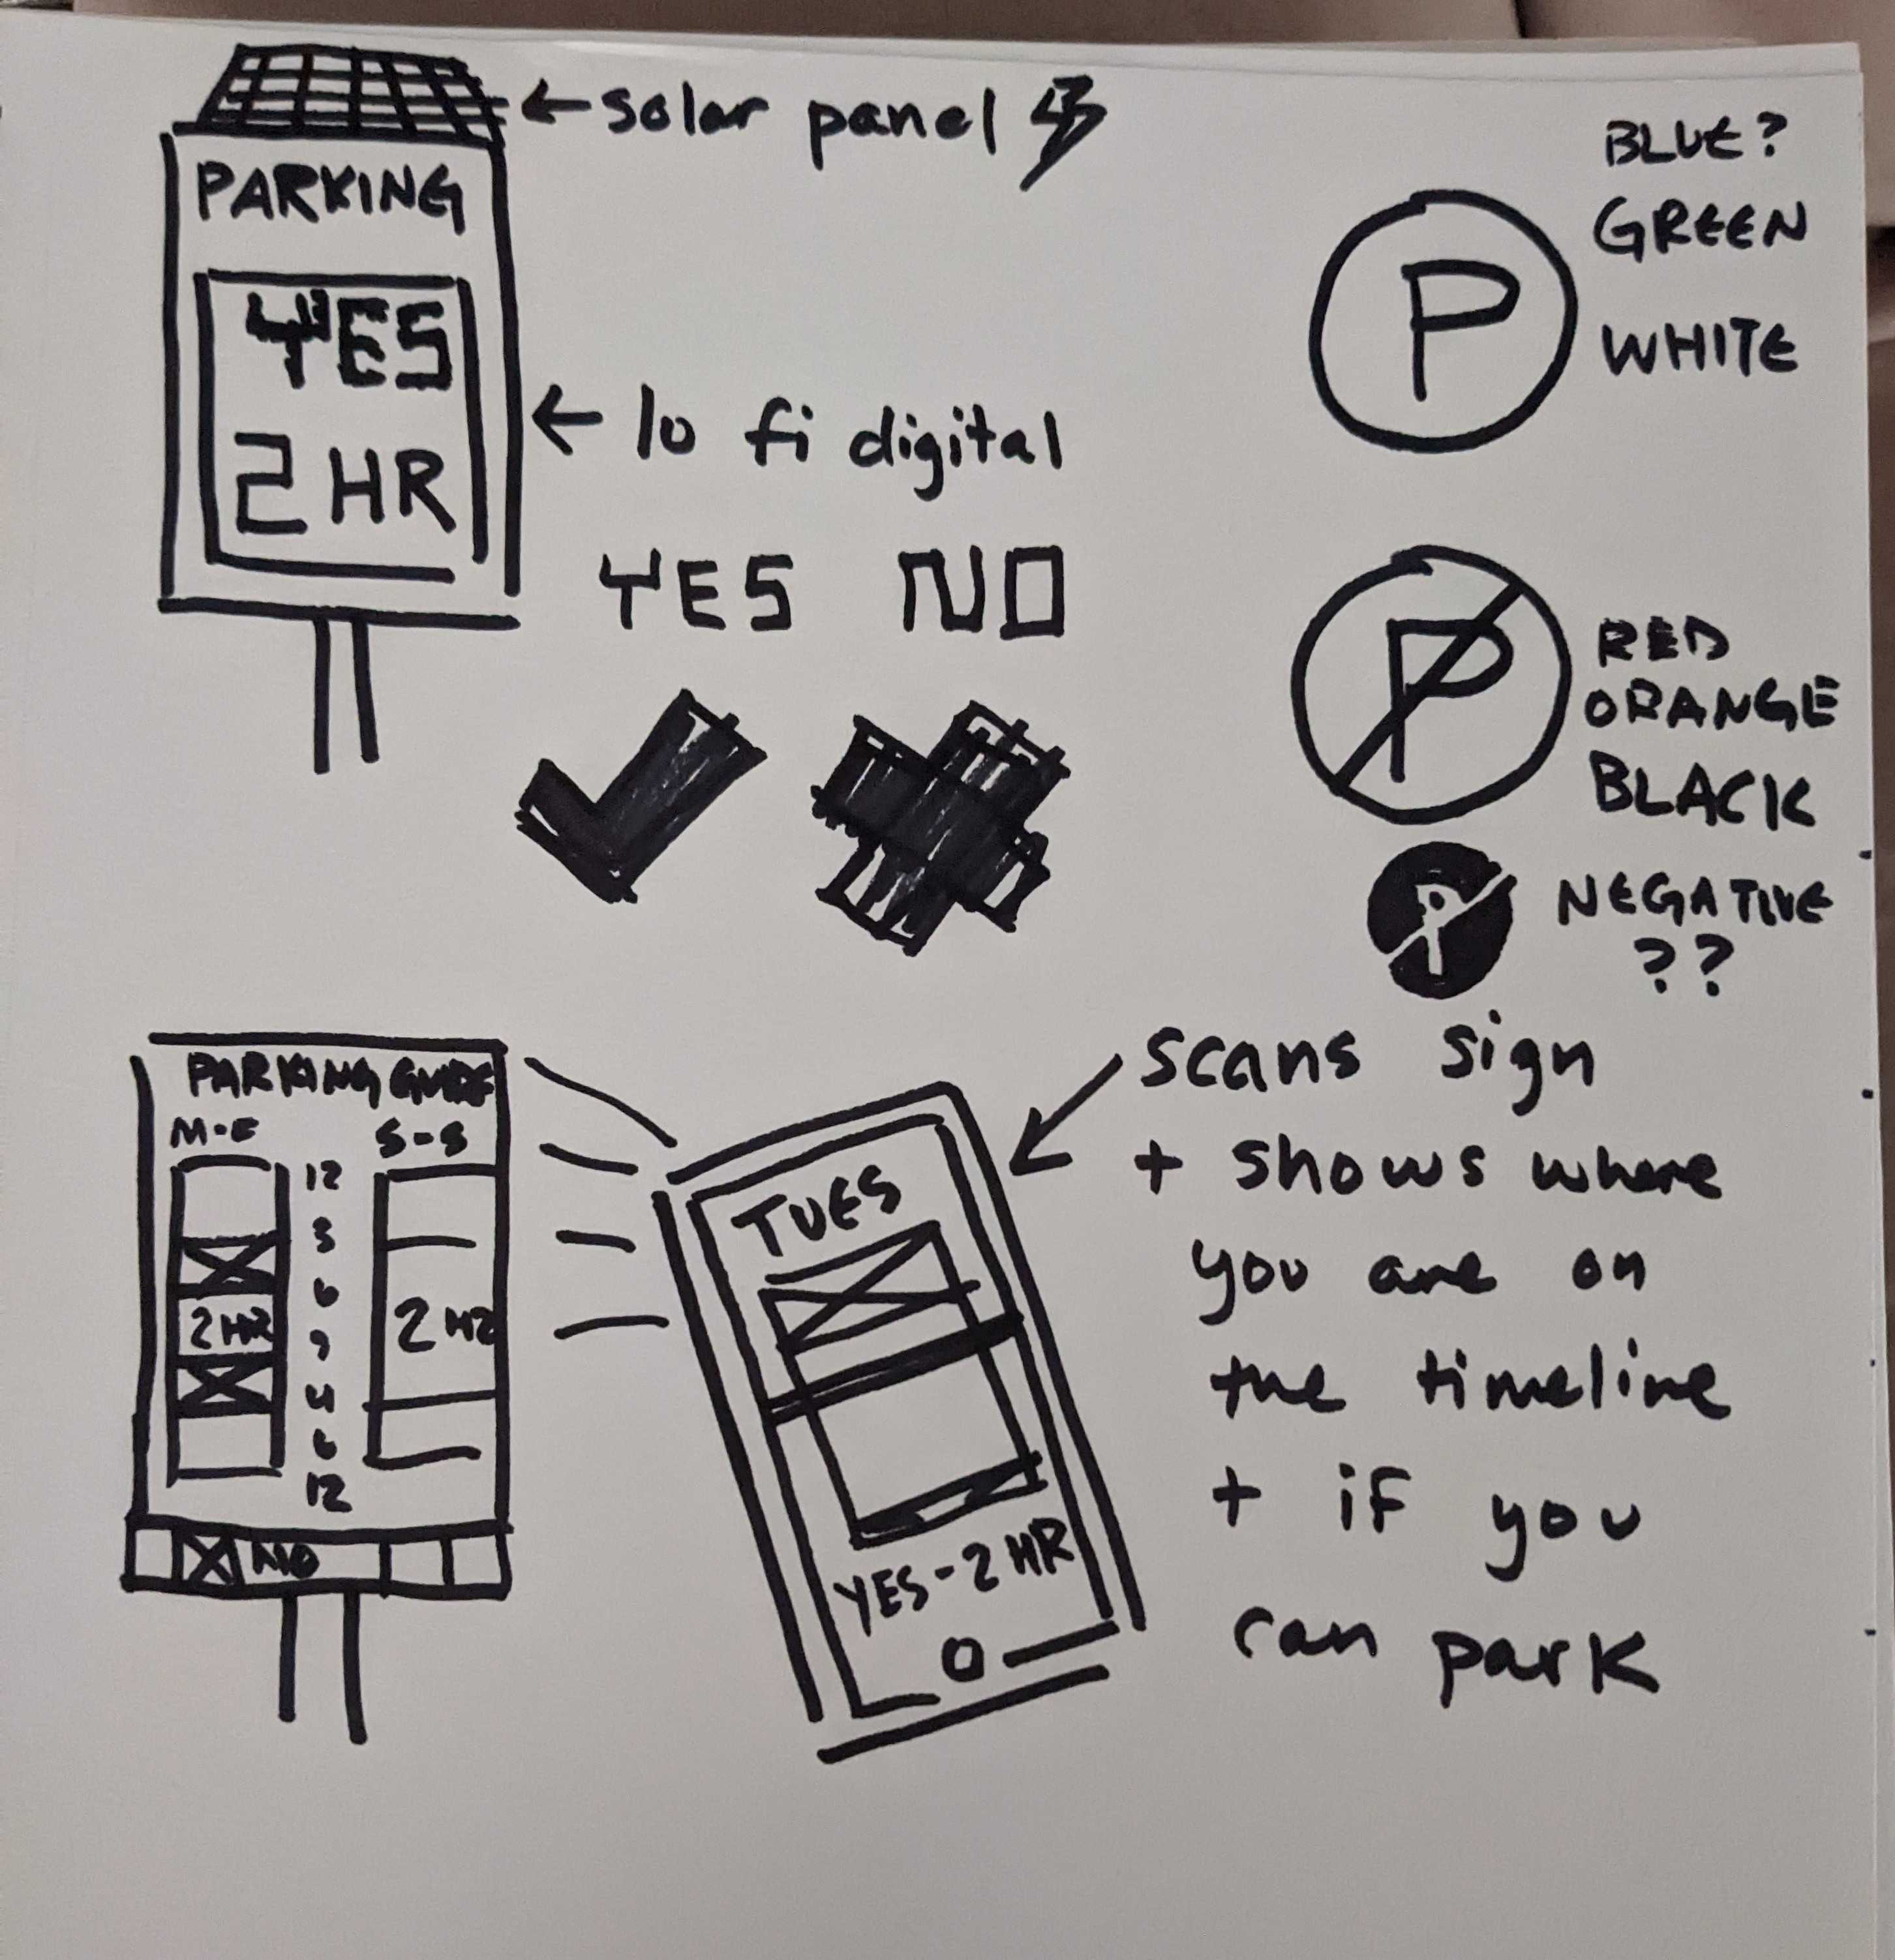 ← solar panel
PARKING
YES
2 HR
← lo fi digital
YES NO
BLUE?
GREEN
P
WHITE
P
RED
ORANGE
BLACK
NEGATIVE
??
PARKING GUIDE
M-F S-S
12
3
6
2 HR
9
2 HR
4
6
12
NO
TUES
YES-2 HR
scans sign
+ shows where
you are on
the timeline
+ if you
can park